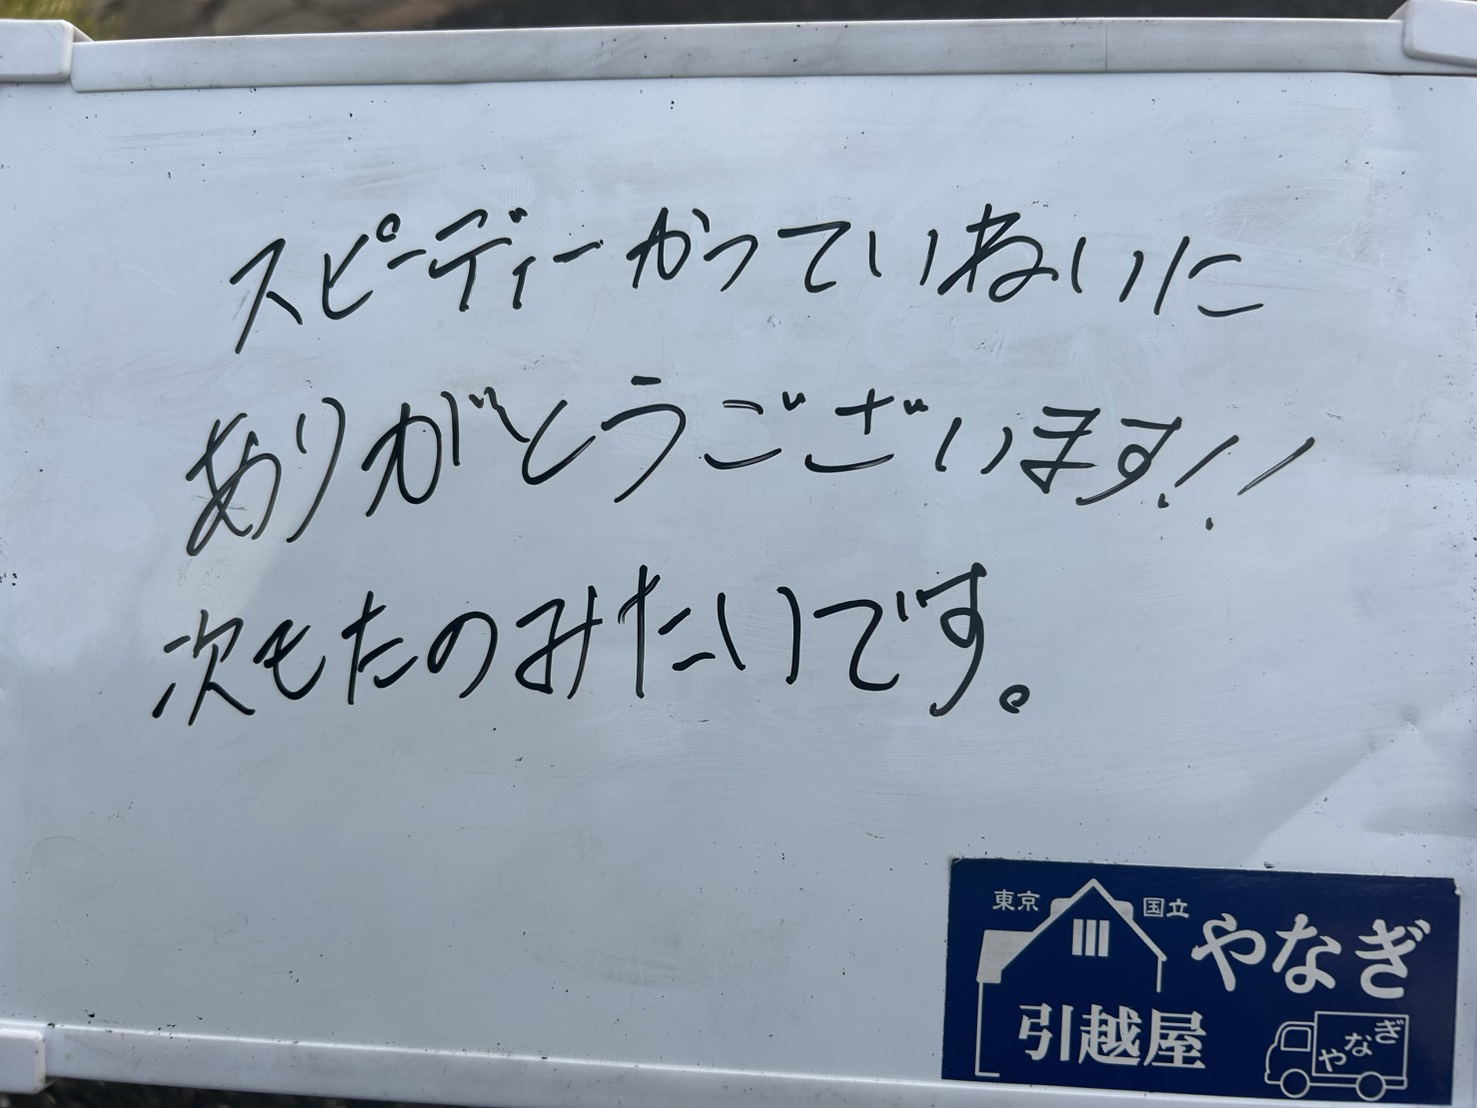 スピーディーかつていねいに
ありがとうございます!!
次もたのみたいです。
東京 国立 やなぎ
引越屋
やなぎ